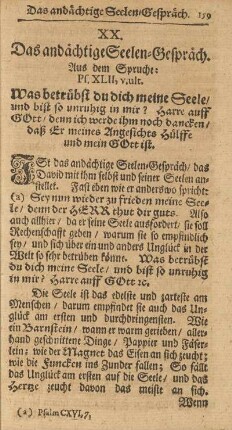 Das andächtige Seelen-Gespräch. 159
XX.
Das andächtige Seelen-Gespräch.
Aus dem Spruche:
Ps. XLII, v. ult.
Was betrübst du dich meine Seele/
und bist so unruhig in mir? Harre auff
GOtt/ denn ich werde ihm noch dancken/
daß Er meines Angesichts Hülffe
und mein GOtt ist.
Ist das andächtige Seelen-Gespräch/ das
David mit ihm selbst und seiner Seelen an-
stellet. Fast eben wie er anderswo spricht:
(a) Sey nun wieder zu frieden meine See-
le/ denn der HERR thut dir guts. Also
auch allhier/ da er seine Seele ausfordert/ sie soll
Rechenschafft geben/ warum sie so empfindlich
sey/ und sich über ein und anders Unglück in der
Welt so sehr betrüben könne. Was betrübst
du dich meine Seele/ und bist so unruhig
in mir? Harre auff GOtt ꝛc.
Die Seele ist das edelste und zarteste am
Menschen/ darum empfindet sie auch das Un-
glück am ersten und durchdringensten. Wie
ein Barnstein/ wann er warm gerieben/ aller-
hand geschnittene Dinge/ Pappier und Fäser-
lein; wie der Magnet das Eisen an sich zeucht;
wie die Funcken ins Zunder fallen; So fällt
das Unglück am ersten auf die Seele/ und das
Hertze zeucht davon das meist an sich.
Wenn
(a) Psalm CXVI, 7.